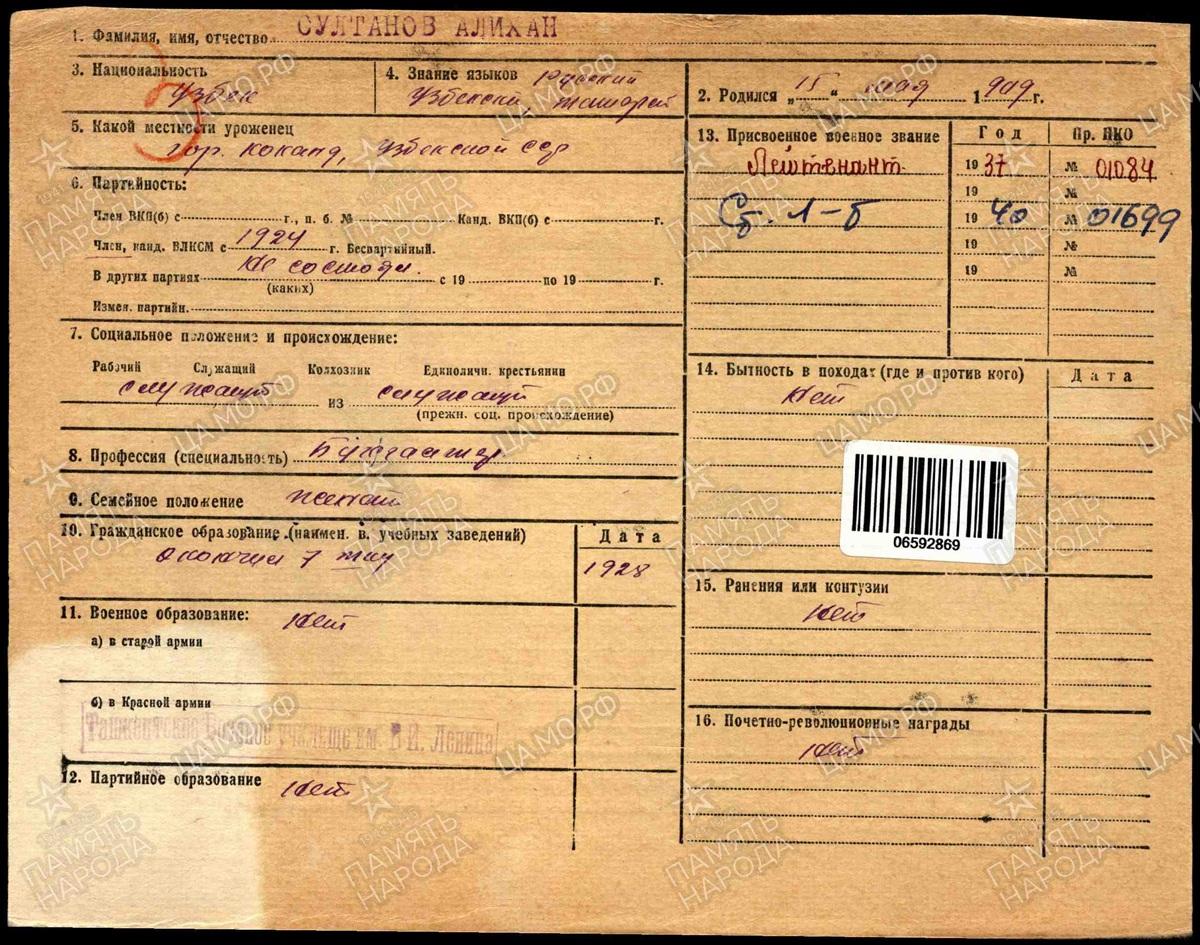 1. Фамилия, имя, отчество СУЛТАНОВ АЛИХАН
3. Национальность
Узбек
4. Знание языков Русский
Узбекский,
2. Родился „15“ мая 1909 г.
5. Какой местности уроженец
гор. Коканд, Узбекской ССР
6. Партийность:
Член ВКП(б) с г., п. б. № Канд. ВКП(б) с г.
Член, канд. ВЛКСМ с 1924 г. Беспартийный.
В других партиях Не состоял. с 19 по 19 г.
(каких)
Измен. партийн.
7. Социальное положение и происхождение:
Рабочий Служащий Колхозник Единоличн. крестьянин
служащий из служащий
(прежн. соц. происхождение)
8. Профессия (специальность) Бухгалтер
9. Семейное положение женат
10. Гражданское образование (наимен. в. учебных заведений) Дата
окончил 7 1928
11. Военное образование: Нет
а) в старой армии
б) в Красной армии
Ташкентское Военное училище им. В.И. Ленина
12. Партийное образование Нет
13. Присвоенное военное звание Год Пр. НКО
Лейтенант 1937 № 01084
19 №
Ст. л-т 1940 № 01699
19 №
19 №
14. Бытность в походах (где и против кого) Дата
Нет
06592869
15. Ранения или контузии
Нет
16. Почетно-революционные награды
Нет
ЦАМО.РФ
ПАМЯТЬ
НАРОДА